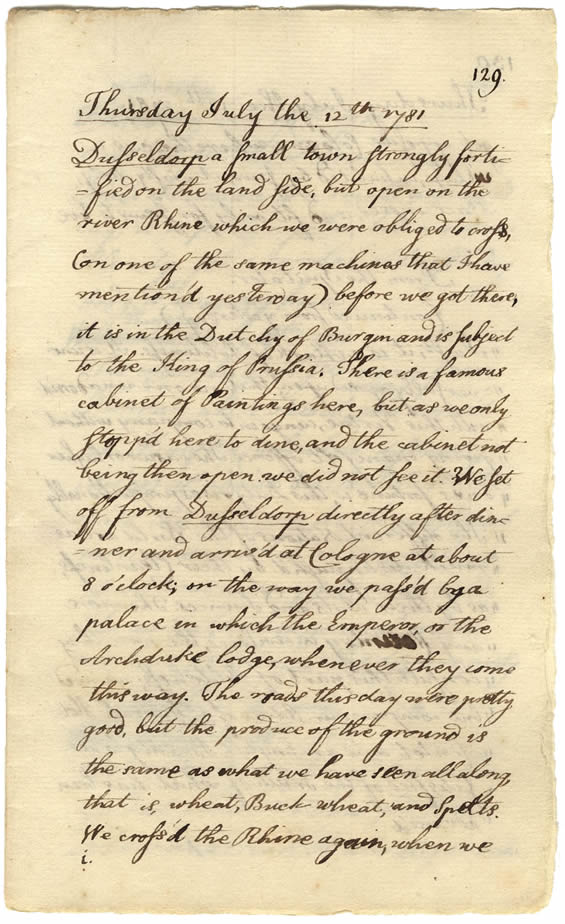 129.
Thursday July the 12th 1781
Dusseldorp a small town strongly forti-
=fied on the land side, but open on the
river Rhine which we were obliged to cross,
(on one of the same machines that I have
mention'd yesterday) before we got there,
it is in the Dutchy of Burgin and is subject
to the King of Prussia. There is a famous
cabinet of Paintings here, but as we only
stopp'd here to dine, and the cabinet not
being then open we did not see it. We set
off from Dusseldorp directly after din=
=ner and arriv'd at Cologne at about
8 o'clock; on the way we pass'd by a
palace in which the Emperor, or the
Archduke lodge, whenever they come
this way. The roads this day were pretty
good, but the produce of the ground is
the same as what we have seen all along,
that is, wheat, Buck-wheat, and Spelts.
We cross'd the Rhine again, when we
i.